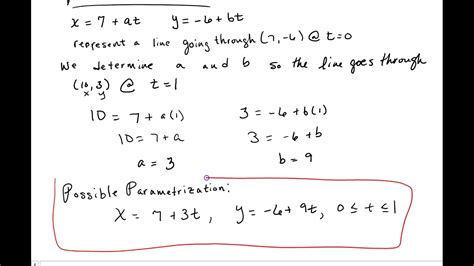 x = 7 + at y = -6 + bt
represent a line going through (7, -6) @ t=0
We determine a and b so the line goes through
(10, 3) @ t=1
x y
10 = 7 + a(1) 3 = -6 + b(1)
10 = 7 + a 3 = -6 + b
a = 3 b = 9
Possible Parametrization:
X = 7 + 3t, y = -6 + 9t, 0 ≤ t ≤ 1